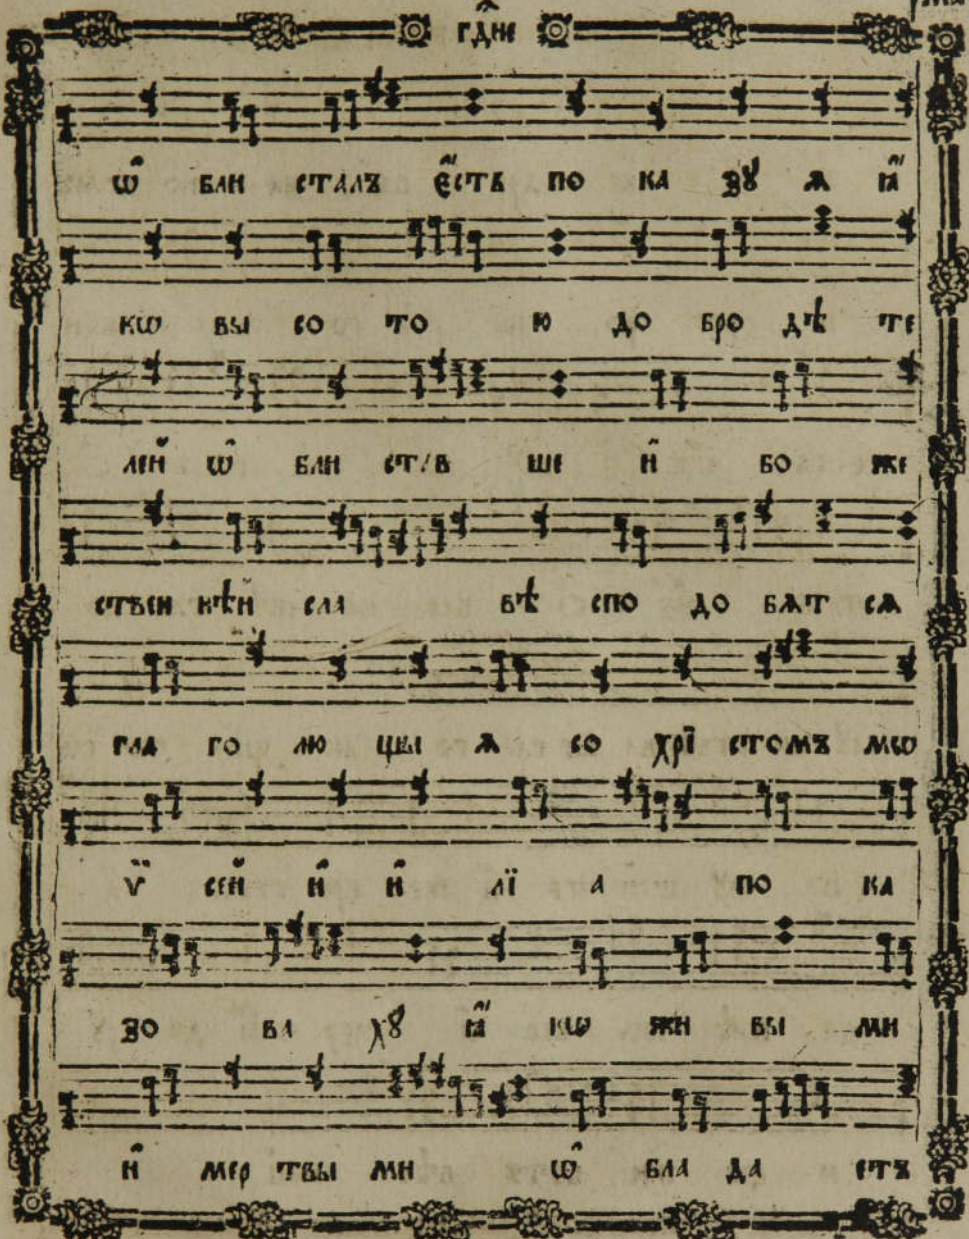 гд҇не
ѡ҆ бли сталъ є҆сть по ка зꙋ ѧ ꙗ҆
кѡ вы со то ю до бро дѣ те
лей ѡ҆ бли ств ше и҆ бо же
ствен нѣй сла вѣ спо до бѧт сѧ
гла го лю щы ѧ со хрї стомъ мѡ
ѵ̈ сей и҆ и҆ лї а по ка
зо ва хꙋ ꙗ҆ кѡ жи вы ми
и҆ мер твы ми ѡ҆ бла да етъ